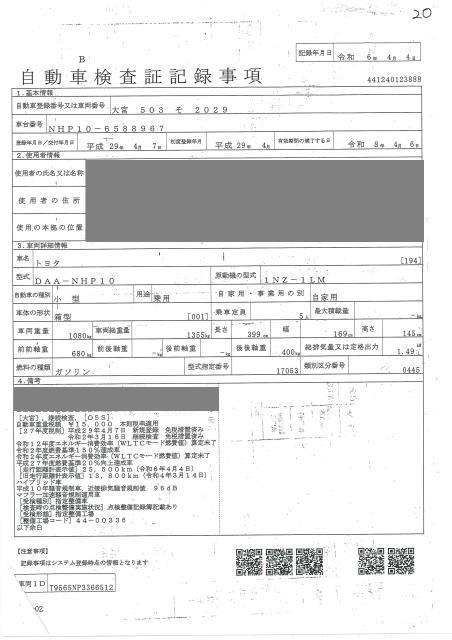 20
B
記録年月日 令和 6年 4月 4日
自動車検査証記録事項
441240123888
1.基本情報
自動車登録番号又は車両番号 大宮 503 そ 2029
車台番号 NHP10-6588967
登録年月日/交付年月日 平成 29年 4月 7日 初度登録年月 平成 29年 4月 有効期間の満了する日 令和 8年 4月 6日
2.使用者情報
使用者の氏名又は名称
使用者の住所
使用の本拠の位置
3.車両詳細情報
車名 トヨタ [194]
型式 DAA-NHP10 原動機の型式 1NZ-1LM
自動車の種別 小型 用途 乗用 自家用・事業用の別 自家用
車体の形状 箱型 [001] 乗車定員 5人 最大積載量 -kg
車両重量 1080kg 車両総重量 1355kg 長さ 399cm 幅 169cm 高さ 145cm
前前軸重 680kg 前後軸重 -kg 後前軸重 -kg 後後軸重 400kg 総排気量又は定格出力 1.49L
燃料の種類 ガソリン 型式指定番号 17053 類別区分番号 0445
4.備考
[大宮],継続検査,[OSS]
自動車重量税額 ¥15,000 本則税率適用
[27年度税制] 平成29年4月7日 新規登録 免税措置済み
令和2年3月16日 継続検査 免税措置済み
令和12年度エネルギー消費効率(WLTCモード燃費値)算定未了
令和2年度燃費基準150%達成車
令和2年度エネルギー消費効率(WLTCモード燃費値)算定未了
平成27年度燃費基準20%向上達成車
[走行距離計表示値] 25,500km (令和6年4月4日)
[旧走行距離計表示値] 13,800km (令和4年3月14日)
ハイブリッド車
平成10年騒音規制車,近接排気騒音規制値 96dB
マフラー加速騒音規制適用車
[受検種別] 指定整備車
[検査時の点検整備実施状況] 点検整備記録簿記載あり
[受検形態] 指定整備工場
[整備工場コード] 44-00336
以下余白
[注意事項]
記録事項はシステム登録時点の情報となります
車両ID T9565NP3366512
02